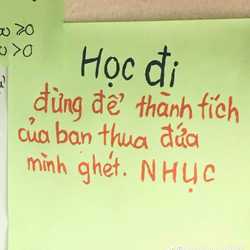 x ≥ 0
x > 0
Học đi
đừng để thành tích
của bạn thua đứa
mình ghét. NHỤC